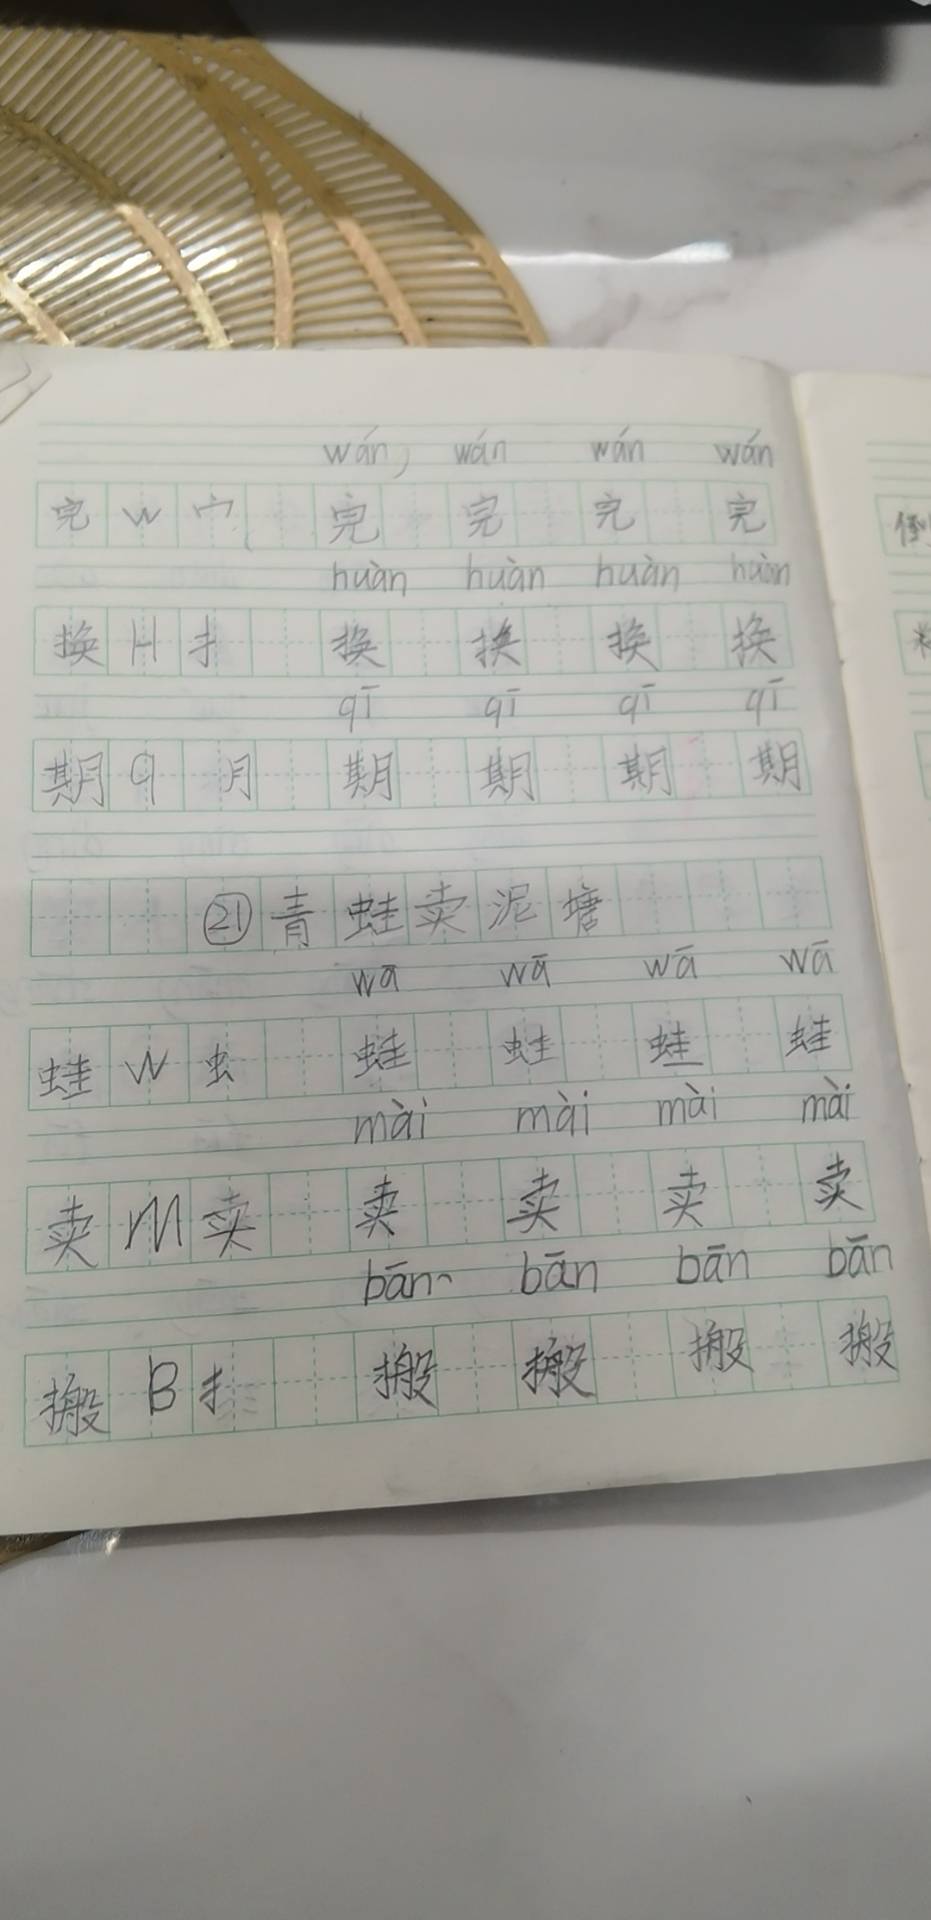 wán wán wán wán
完 W 宀 完 完 完 完
huàn huàn huàn huàn
换 H 扌 换 换 换 换
qī qī qī qī
期 q 月 期 期 期 期
㉑ 青蛙卖泥塘
wā wā wā wā
蛙 W 虫 蛙 蛙 蛙 蛙
mài mài mài mài
卖 M 卖 卖 卖 卖 卖
bān bān bān bān
搬 B 扌 搬 搬 搬 搬